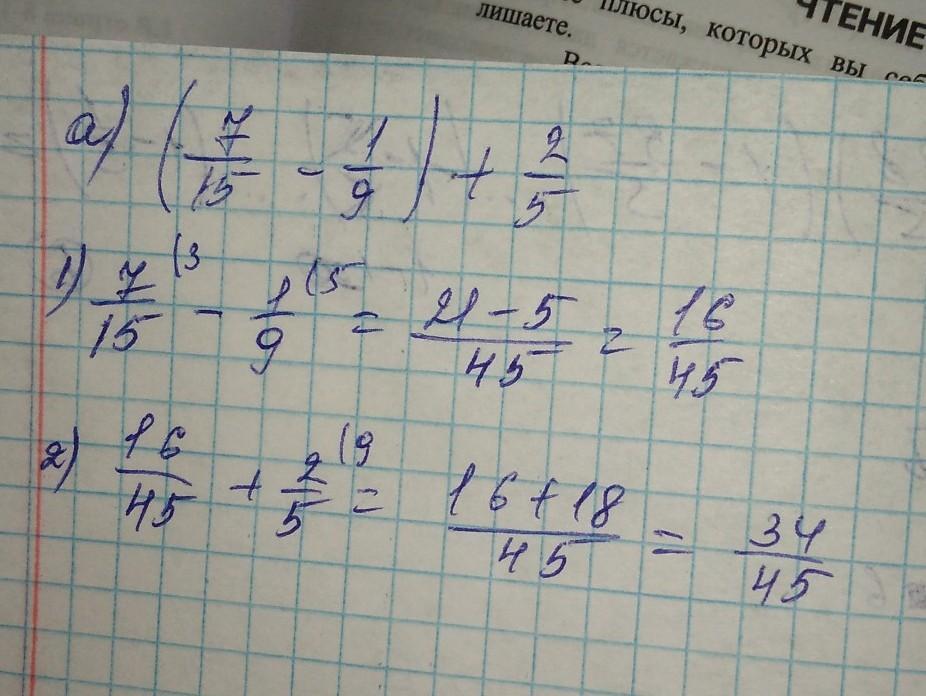 плюсы, которых вы себ
лишаете.
ЧТЕНИЕ
а) (7/15 - 1/9) + 2/5
1) 7/15 (3 - 1/9 (5 = 21-5/45 = 16/45
2) 16/45 + 2/5 (9 = 16+18/45 = 34/45